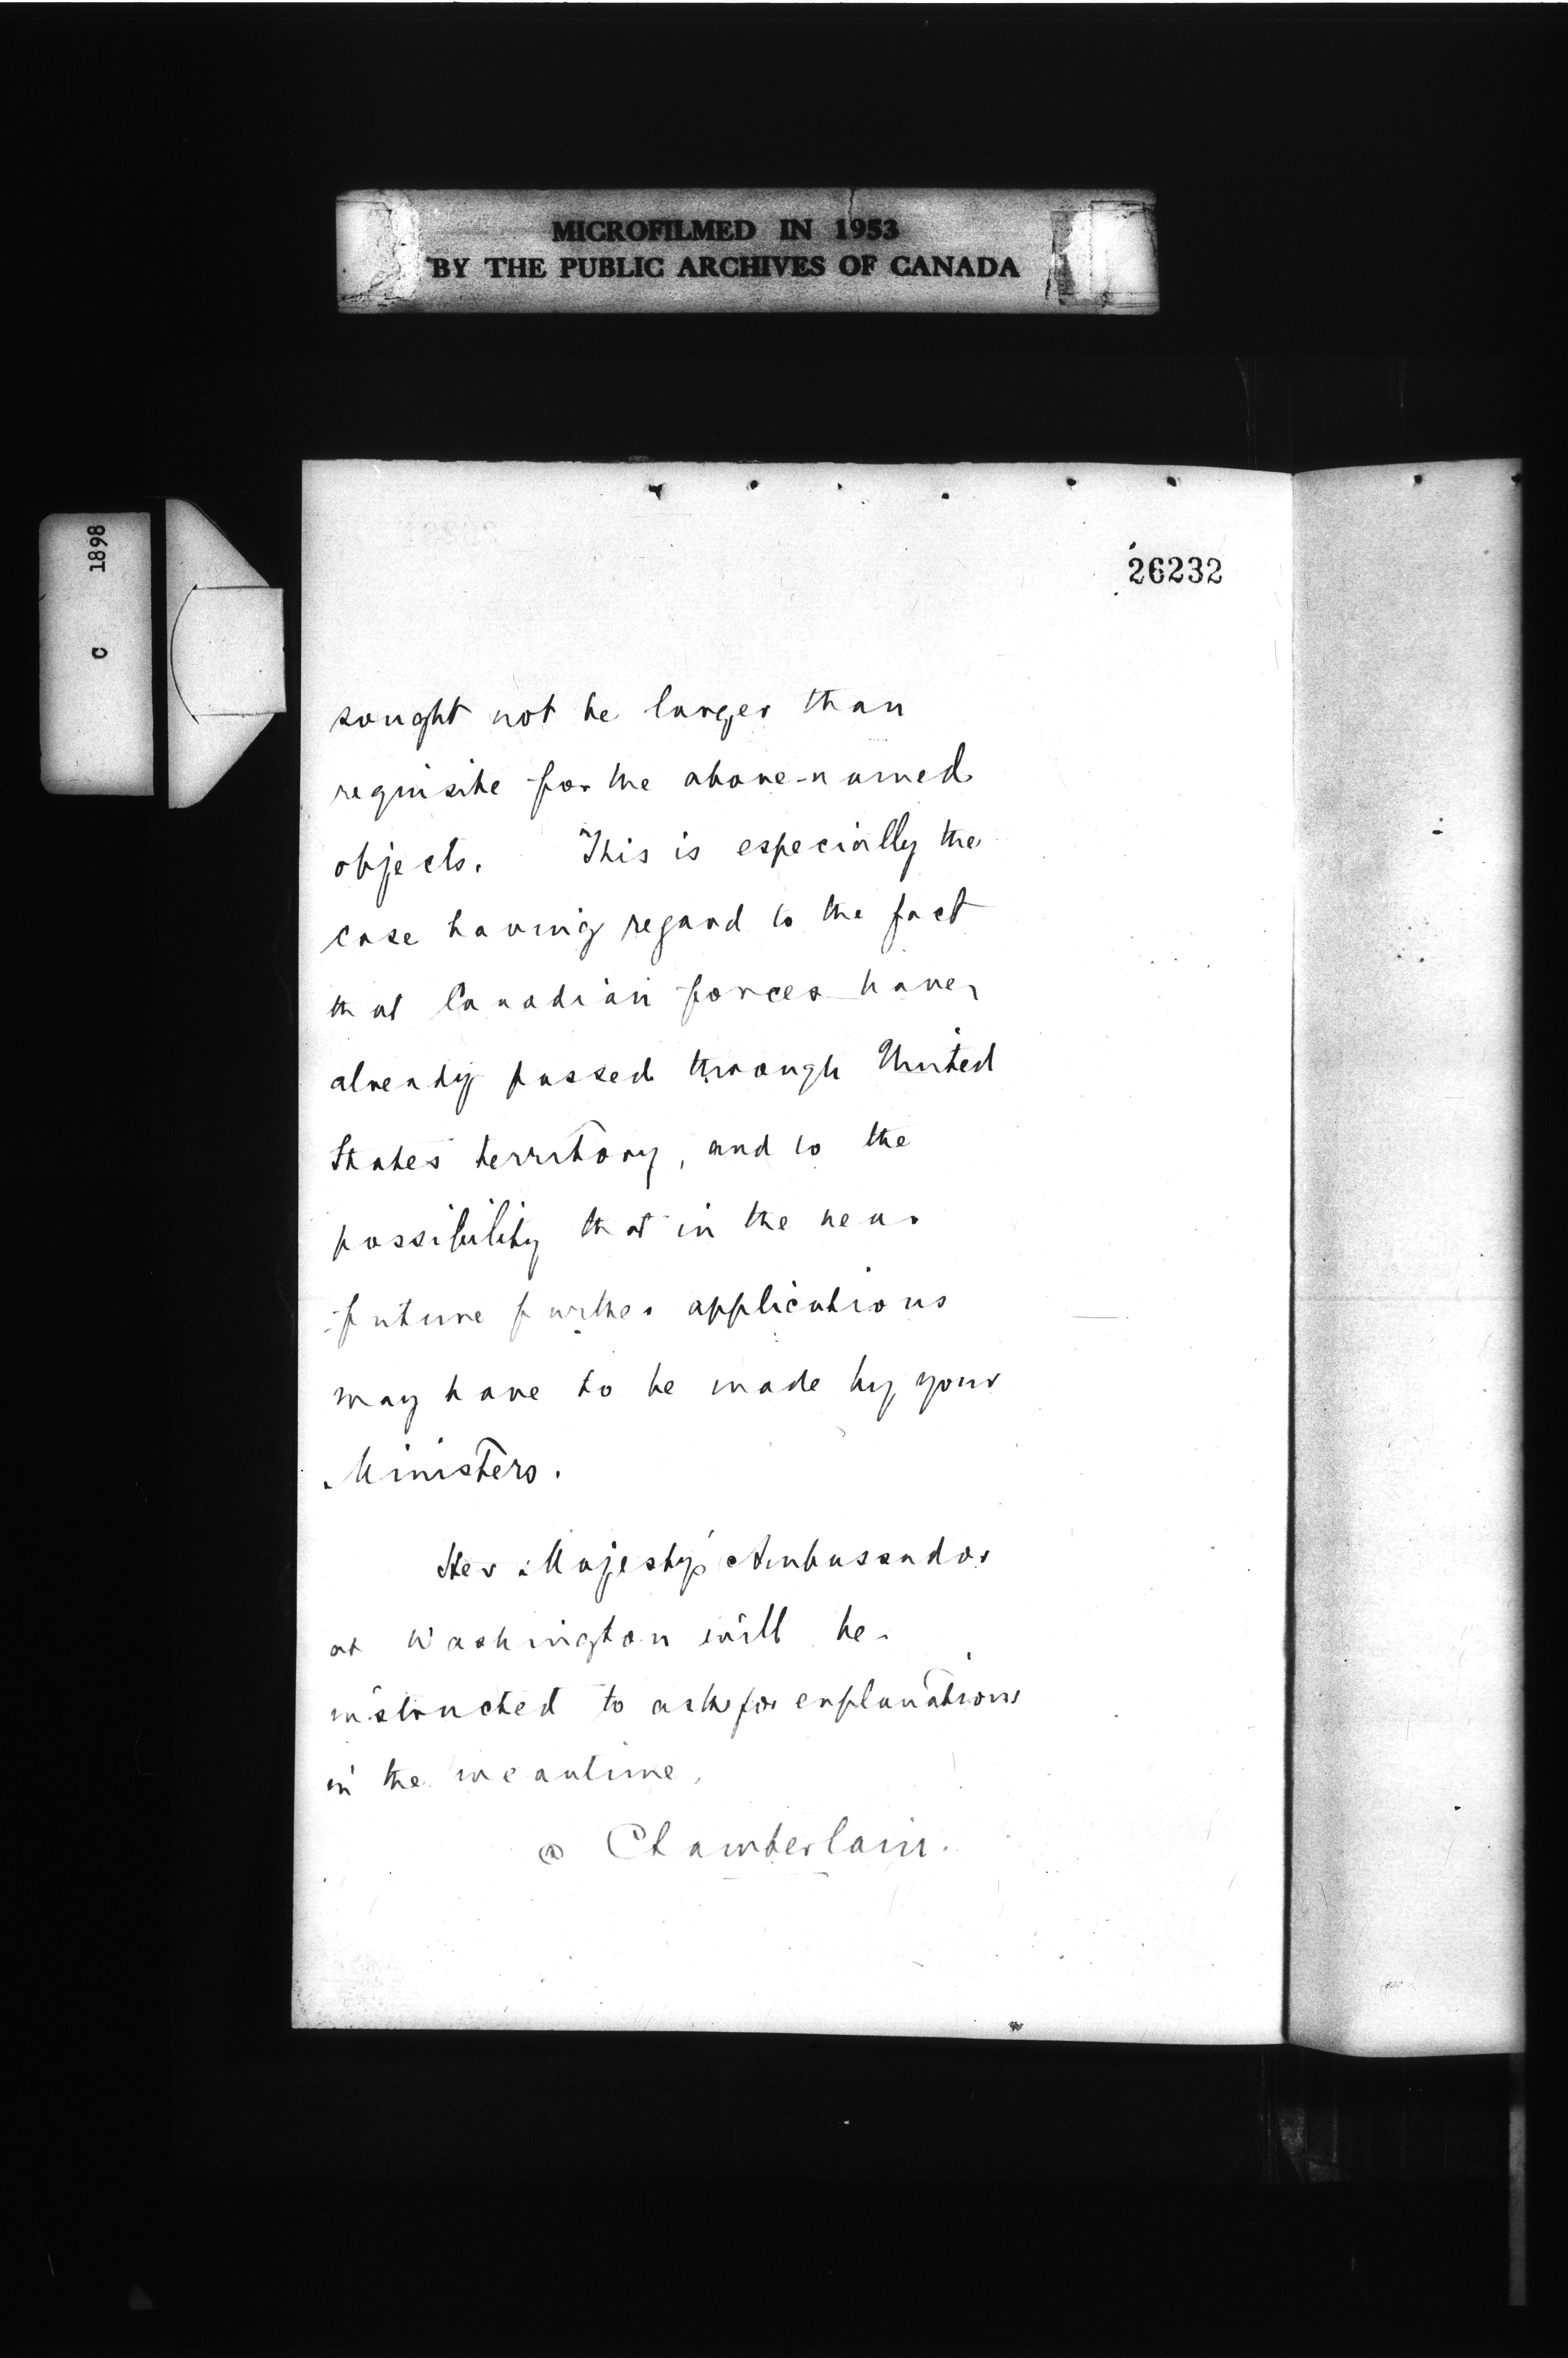 MICROFILMED IN 1953
BY THE PUBLIC ARCHIVES OF CANADA
C 1898
26232
sought not be larger than
requisite for the above-named
objects. This is especially the
case having regard to the fact
that Canadian forces have
already passed through United
States territory, and to the
possibility that in the near
future further applications
may have to be made by your
Ministers.
Her Majesty's Ambassador
at Washington will be
instructed to ask for explanations
in the meantime.
Chamberlain.